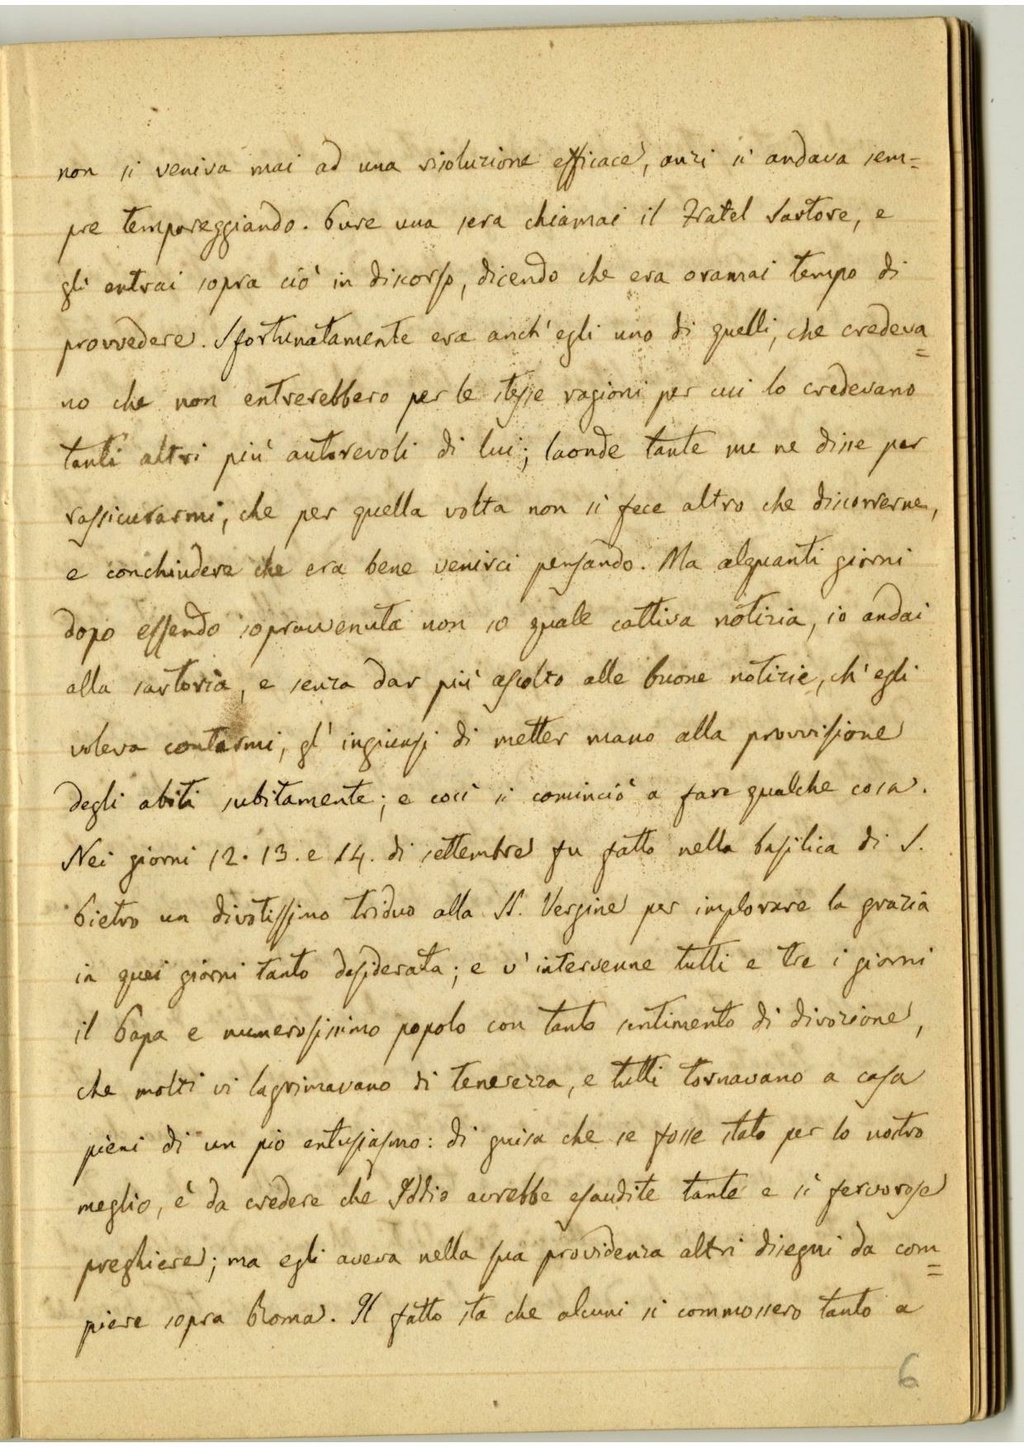 non si veniva mai ad una risoluzione efficace, anzi si andava sem=
pre temporeggiando. Pure una sera chiamai il Fratel Sartore, e
gli entrai sopra ciò in discorso, dicendo che era oramai tempo di
provvedere. Sfortunatamente era anch'egli uno di quelli, che credeva=
no che non entrerebbero per le stesse ragioni per cui lo credevano
tanti altri più autorevoli di lui; laonde tante me ne disse per
rassicurarmi, che per quella volta non si fece altro che discorrerne,
e conchiudere che era bene venirci pensando. Ma alquanti giorni
dopo essendo sopravvenuta non so quale cattiva notizia, io andai
alla sartoria, e senza dar più ascolto alle buone notizie, ch'egli
voleva contarmi, gl'ingiunsi di metter mano alla provvisione
degli abiti subitamente; e così si cominciò a fare qualche cosa.
Nei giorni 12. 13. e 14. di settembre fu fatto nella basilica di S.
Pietro un divotissimo triduo alla SS. Vergine per implorare la grazia
in quei giorni tanto desiderata; e v'intervenne tutti e tre i giorni
il Papa e numerosissimo popolo con tanto sentimento di divozione,
che molti vi lagrimavano di tenerezza, e tutti tornavano a casa
pieni di un pio entusiasmo: di guisa che se fosse stato per lo nostro
meglio, è da credere che Iddio avrebbe esaudite tante e sì fervorose
preghiere; ma egli aveva nella sua providenza altri disegni da com=
piere sopra Roma. Il fatto sta che alcuni si commossero tanto a
6